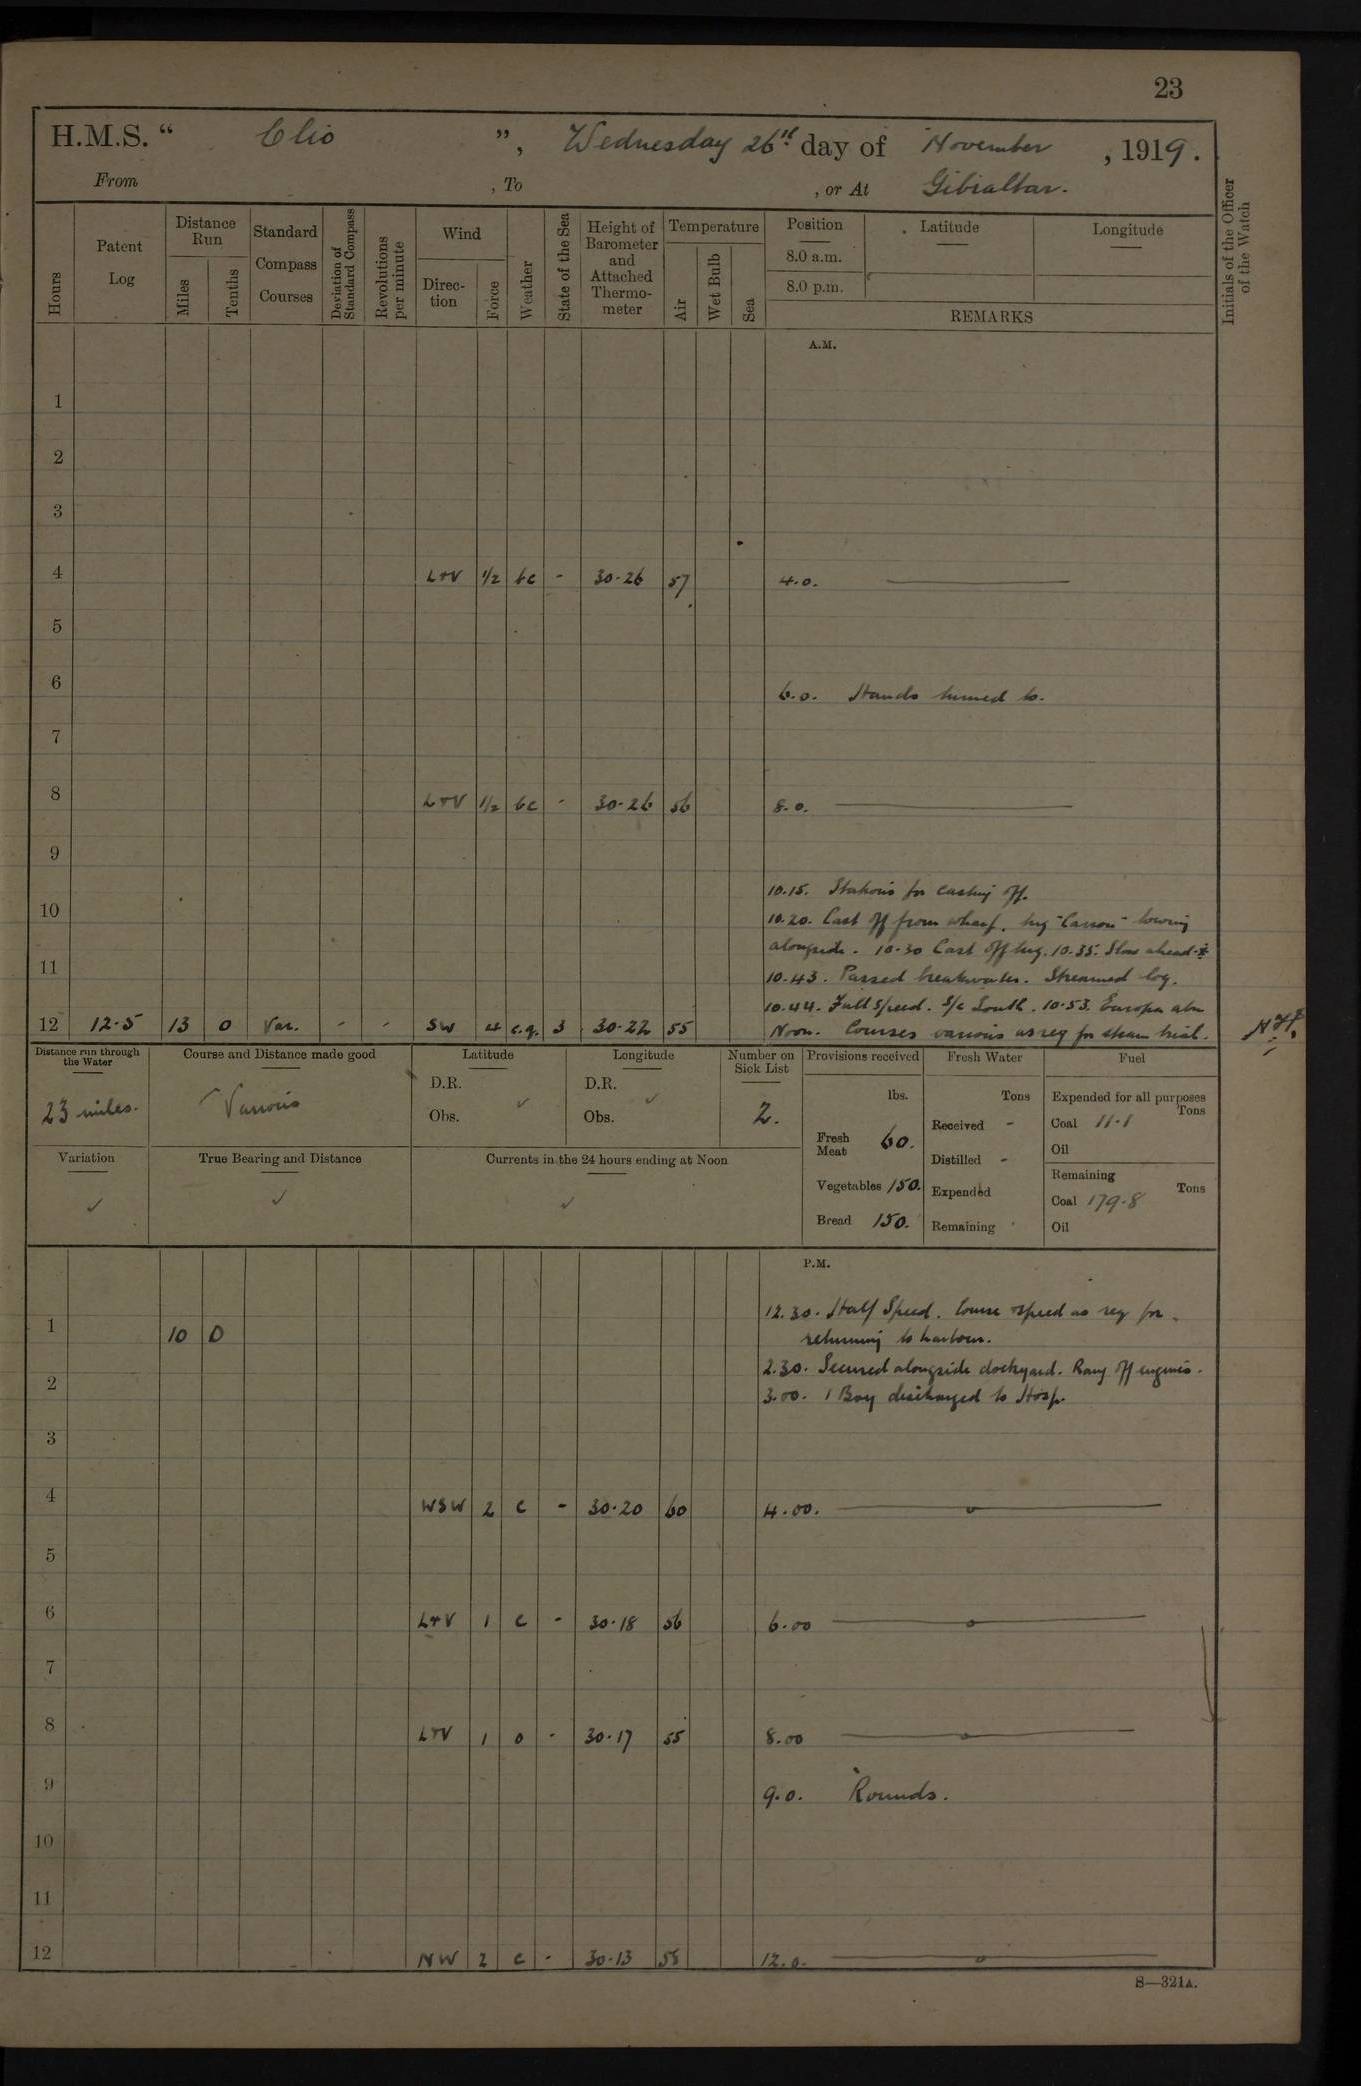 23
H.M.S. “ Clio ”, Wednesday 26th day of November, 1919.
From , To , or At Gibraltar.
Hours
Patent Log
Distance Run
Miles
Tenths
Standard Compass Courses
Deviation of Standard Compass
Revolutions per minute
Wind
Direction
Force
Weather
State of the Sea
Height of Barometer and Attached Thermometer
Temperature
Air
Wet Bulb
Sea
Position
8.0 a.m.
8.0 p.m.
Latitude
Longitude
REMARKS
Initials of the Officer of the Watch
A.M.
1
2
3
4 L&V 1/2 bc - 30.26 57 4.0.
5
6 6.0. Hands turned to.
7
8 L&V 1/2 bc - 30.26 56 8.0.
9
10.15. Stations for casting off.
10 10.20. Cast off from wharf. tug "Carron" towing
alongside. 10.30 Cast off tug. 10.35. Slow ahead.
11 10.43. Passed breakwater. Streamed log.
10.44. Full Speed. S/c South. 10.53. Europa abm
12 12.5 13 0 Var. - - SW 4 c.q. 3 30.22 55 Noon. Courses various as req for steam trial.
Distance run through the Water
23 miles.
Course and Distance made good
Various
Latitude
D.R.
Obs.
Longitude
D.R.
Obs.
Number on Sick List
2.
Provisions received
lbs.
Fresh Meat 60.
Vegetables 150.
Bread 150.
Fresh Water
Tons
Received -
Distilled -
Expended
Remaining
Fuel
Expended for all purposes
Tons
Coal 11.1
Oil
Remaining
Tons
Coal 179.8
Oil
Variation
True Bearing and Distance
Currents in the 24 hours ending at Noon
P.M.
12.30. Half Speed. Course & speed as req for
1 10 0 returning to harbour.
2.30. Secured alongside dockyard. Rang off engines.
2 3.00. 1 Boy discharged to Hosp.
3
4 WSW 2 c - 30.20 60 4.00.
5
6 L&V 1 c - 30.18 56 6.00
7
8 L&V 1 o - 30.17 55 8.00
9 9.0. Rounds.
10
11
12 NW 2 c - 30.13 58 12.0.
S—321A.